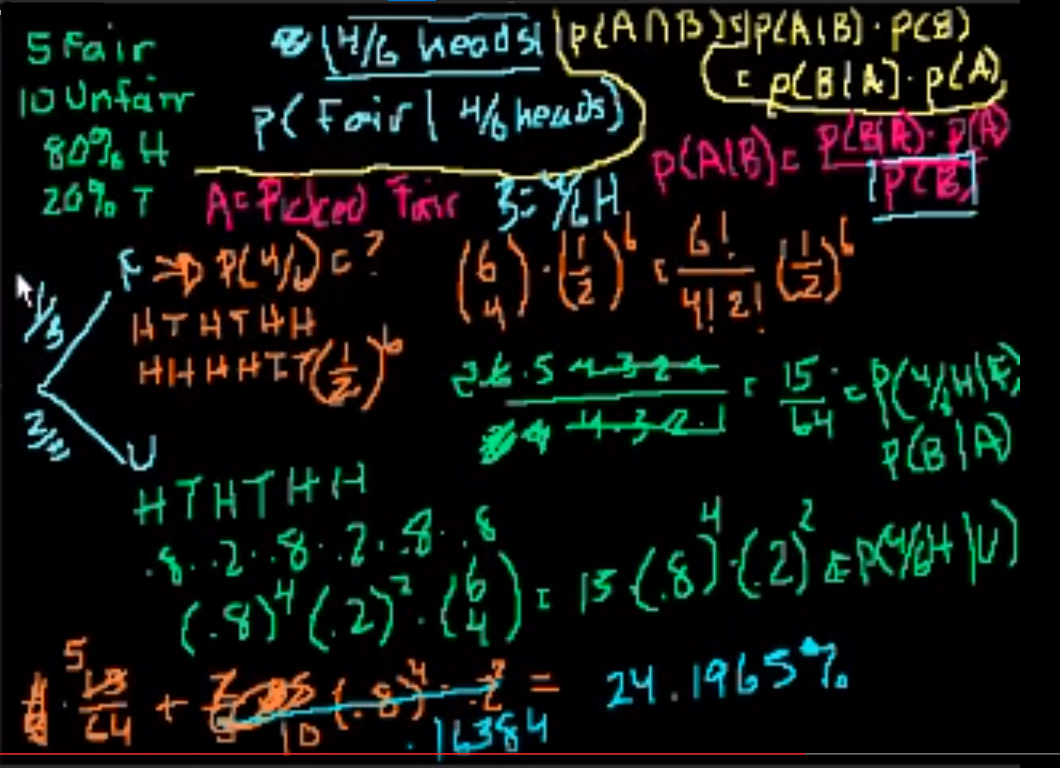 5 Fair
10 Unfair
80% H
20% T
(4/6 heads)
P(Fair | 4/6 heads)
P(A∩B) = P(A|B) · P(B)
= P(B|A) · P(A)
P(A|B) = P(B|A) · P(A) / P(B)
A = Picked Fair
B = 4/6 H
1/3
F ⇒ P(4/6) = ?
HTHTHH
HHHHTT (1/2)^6
2/3
U
(6 4) · (1/2)^6 = 6!/4!2! (1/2)^6
6·5 4·3·2·1 / 4·3·2·1 = 15/64 = P(4/6H|F)
P(B|A)
HTHTHH
.8 · .2 · .8 · .2 · .8 · .8
(.8)^4 (.2)^2 · (6 4) = 15 (.8)^4 · (.2)^2 = P(4/6H|U)
5/64 + 10 (.8)^4 · .2^2 = 24.1965%
.16384